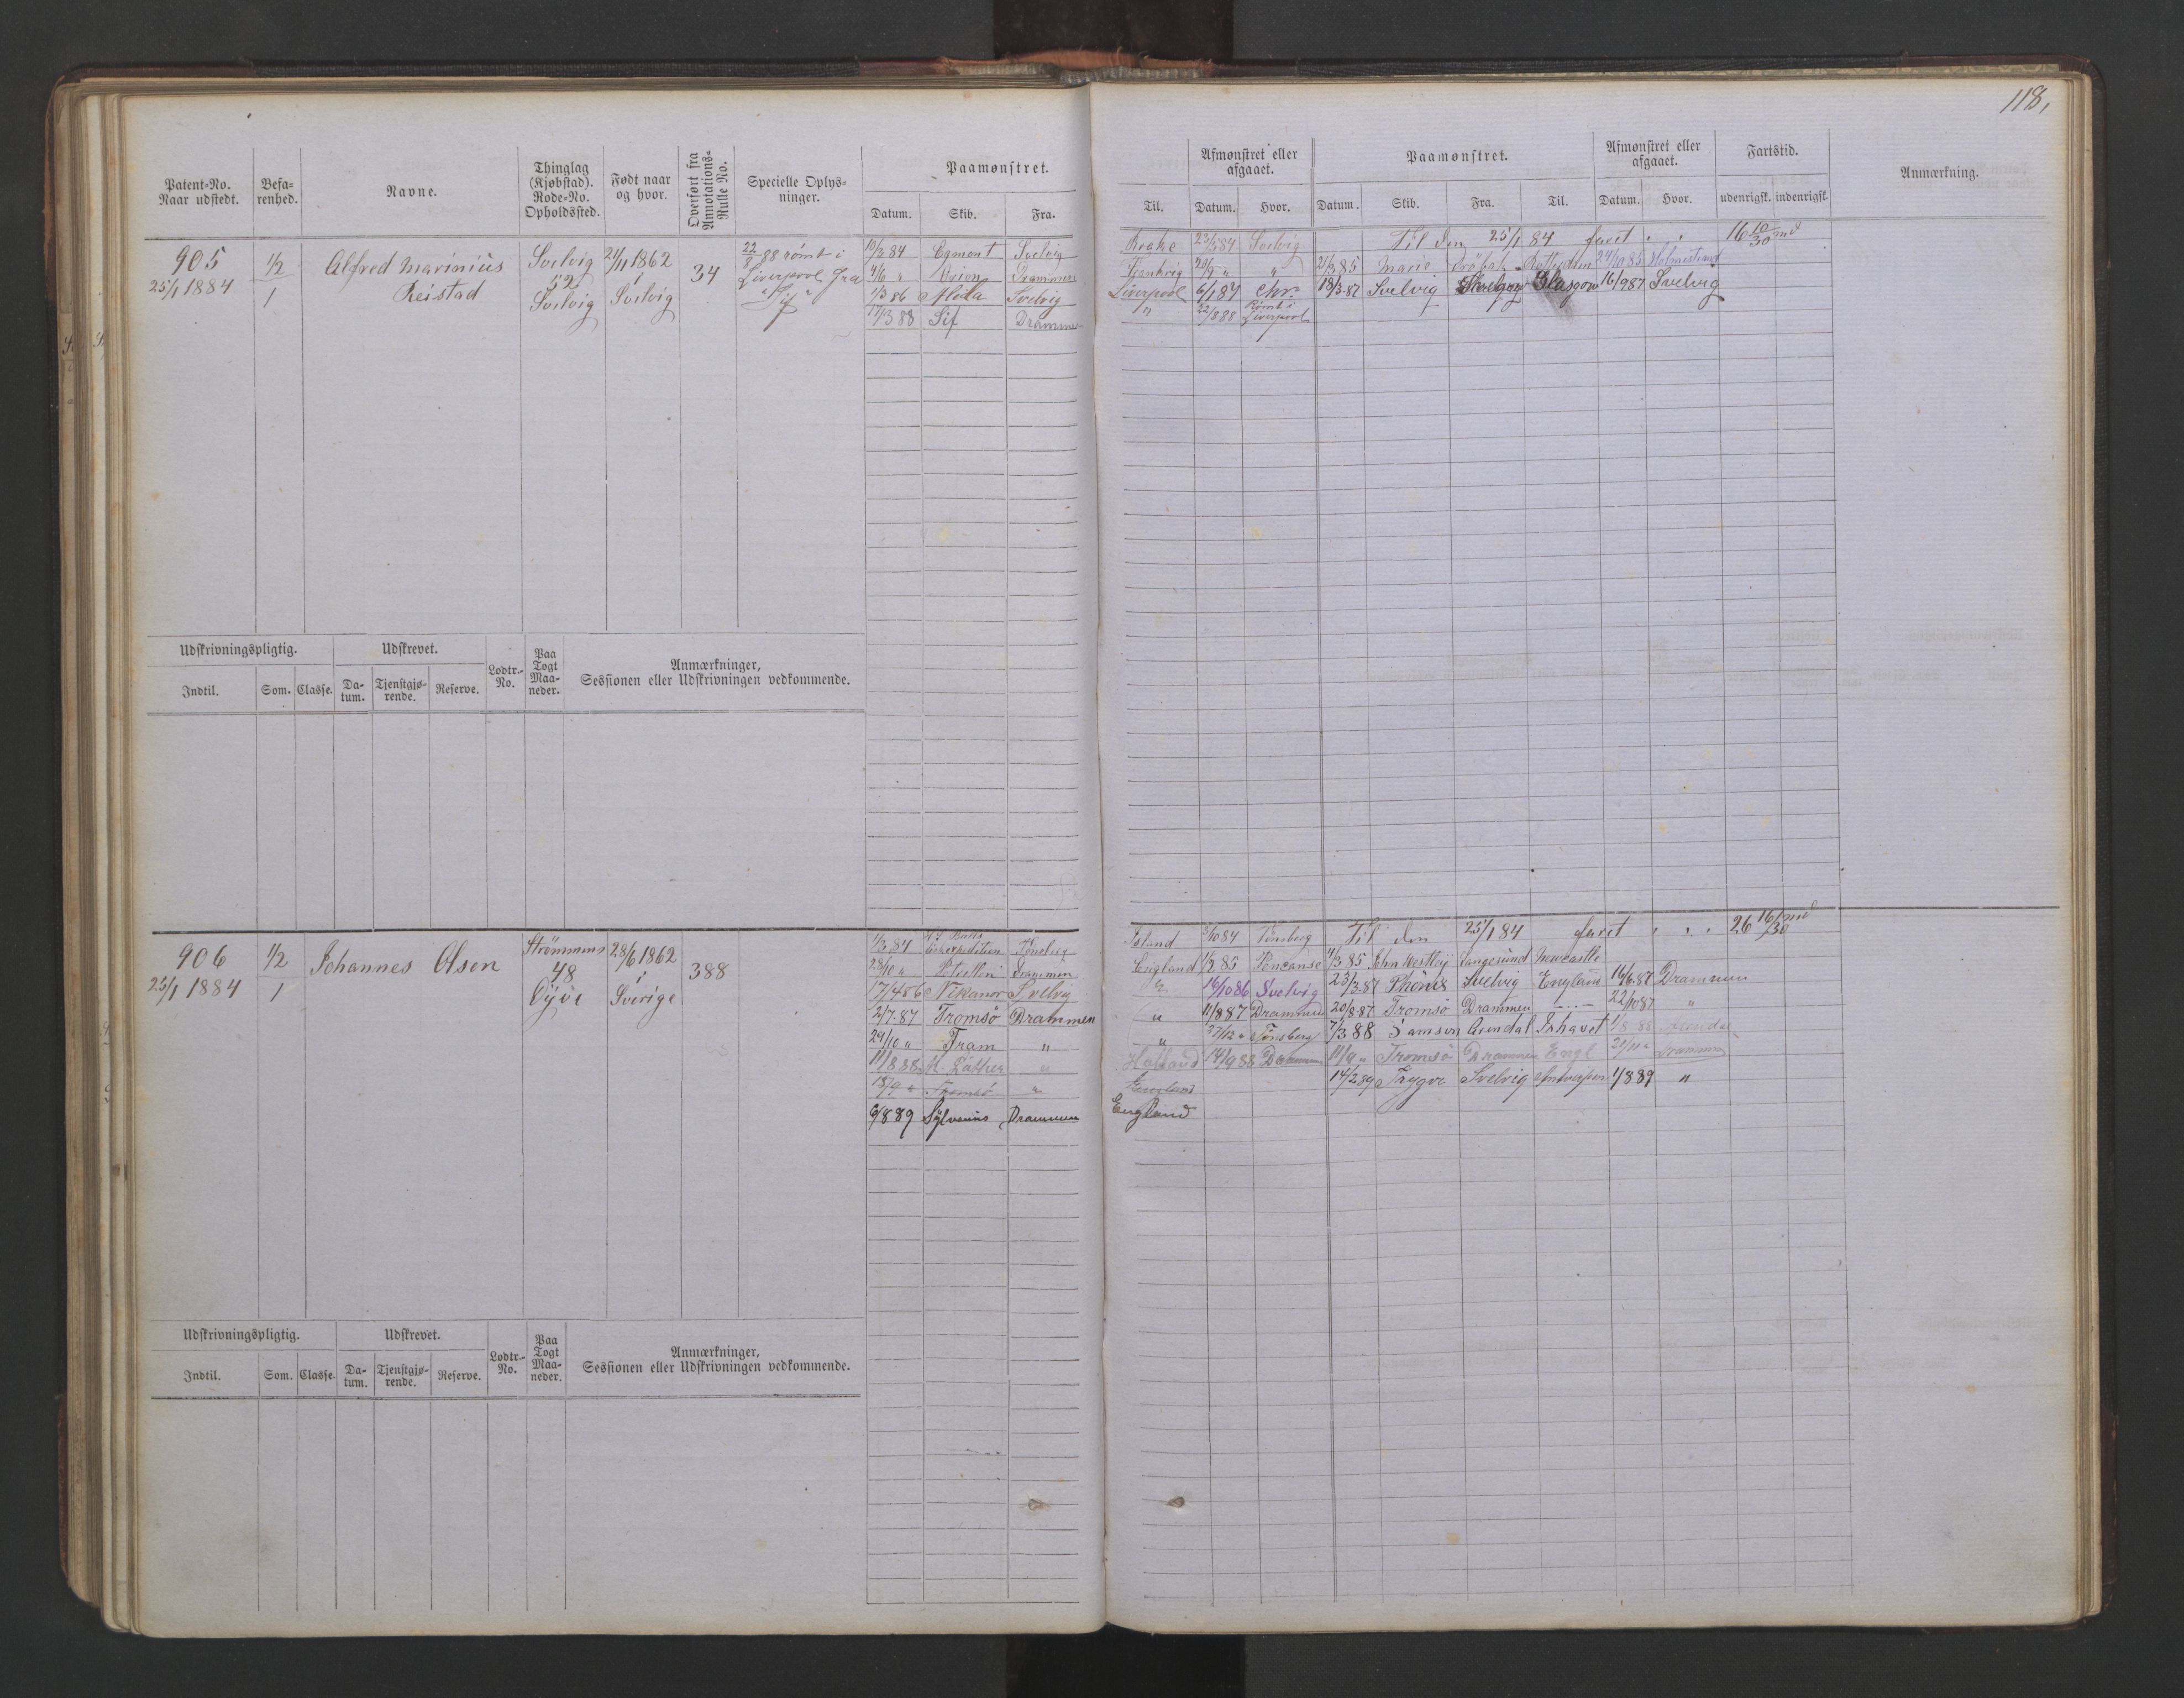 118,
Patent-No. Naar udstedt.
Befa-renhed.
Navne.
Thinglag (Kjøbstad). Rode-No. Opholdssted.
Født naar og hvor.
Overført fra Annotations-Rulle No.
Specielle Oplys-ninger.
Paamønstret.
Datum. Skib. Fra.
Til.
Afmønstret eller afgaaet.
Datum. Hvor.
Paamønstret.
Datum. Skib. Fra. Til.
Afmønstret eller afgaaet.
Datum. Hvor.
Fartstid.
udenrigsk. indenrigsk.
Anmærkning.
905
25/1 1884
1/2
1
Alfred Marinius
Reistad
Svelvig
52
Svelvig
24/11 1862
Svelvig
34
22/8 88 rømt i
Liverpool fra
"Sif"
10/3 84 Egmont Svelvig
4/6 " Drammen
1/3 86 Svelvig
17/3 88 Sif Drammen
23/5 84 Svelvig Til den 25/1 84 faret " " 16 10/30 md
21/3 85 Marie Drøbak 24/10 85 Holmestrand
Liverpool 6/1 87 Chr. 18/3 87 Svelvig Glasgow 16/9 87 Svelvig
" 22/8 88 Rømt i Liverpool
Udskrivningspligtig.
Udskrevet.
Indtil. Som. Classe. Da-tum. Tjenstgjø-rende. Reserve.
Lodtr.-No.
Paa Togt Maa-neder.
Anmærkninger,
Sessionen eller Udskrivningen vedkommende.
906
25/1 1884
1/2
1
Johannes Olsen
Strömmens
48
28/6 1862
Sverige
388
1/3 84 Tönsberg
28/10 " Drammen
Nikanor Svelvig
2/7 87 Tromsö Drammen
29/10 " Fram "
11/8 88 M. Luther "
18/9 " Tromsö "
6/8 89 Sylvanus Drammen
Island Tönsberg Til den 25/1 84 faret " " " 26 16/30 md
England 1/2 85 Penzanse 4/3 85 John Westley Langesund Newcastle
" 16/10 86 Svelvig 23/3 87 Phönix Svelvig England 16/6 87 Drammen
" 11/8 87 Drammen 20/8 87 Tromsö Drammen 22/10 87 "
" 27/12 " Tönsberg 7/3 88 Samson Arendal Ishavet 88 Arendal
Holland 14/9 88 Drammen 11/9 " Tromsö Drammen Engl Drammen
England 14/2 89 Trygve Svelvig Antwerpen 1/8 89 "
England
Udskrivningspligtig.
Udskrevet.
Indtil. Som. Classe. Da-tum. Tjenstgjø-rende. Reserve.
Lodtr.-No.
Paa Togt Maa-neder.
Anmærkninger,
Sessionen eller Udskrivningen vedkommende.